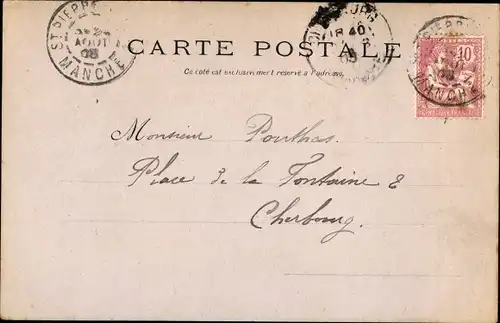 ST PIERRE
AOUT
MANCHE
CARTE POSTALE
Ce côté est exclusivement réservé à l'adresse.
40
10
MANCHE
Monsieur Pouthas
Place de la Fontaine 8
Cherbourg.